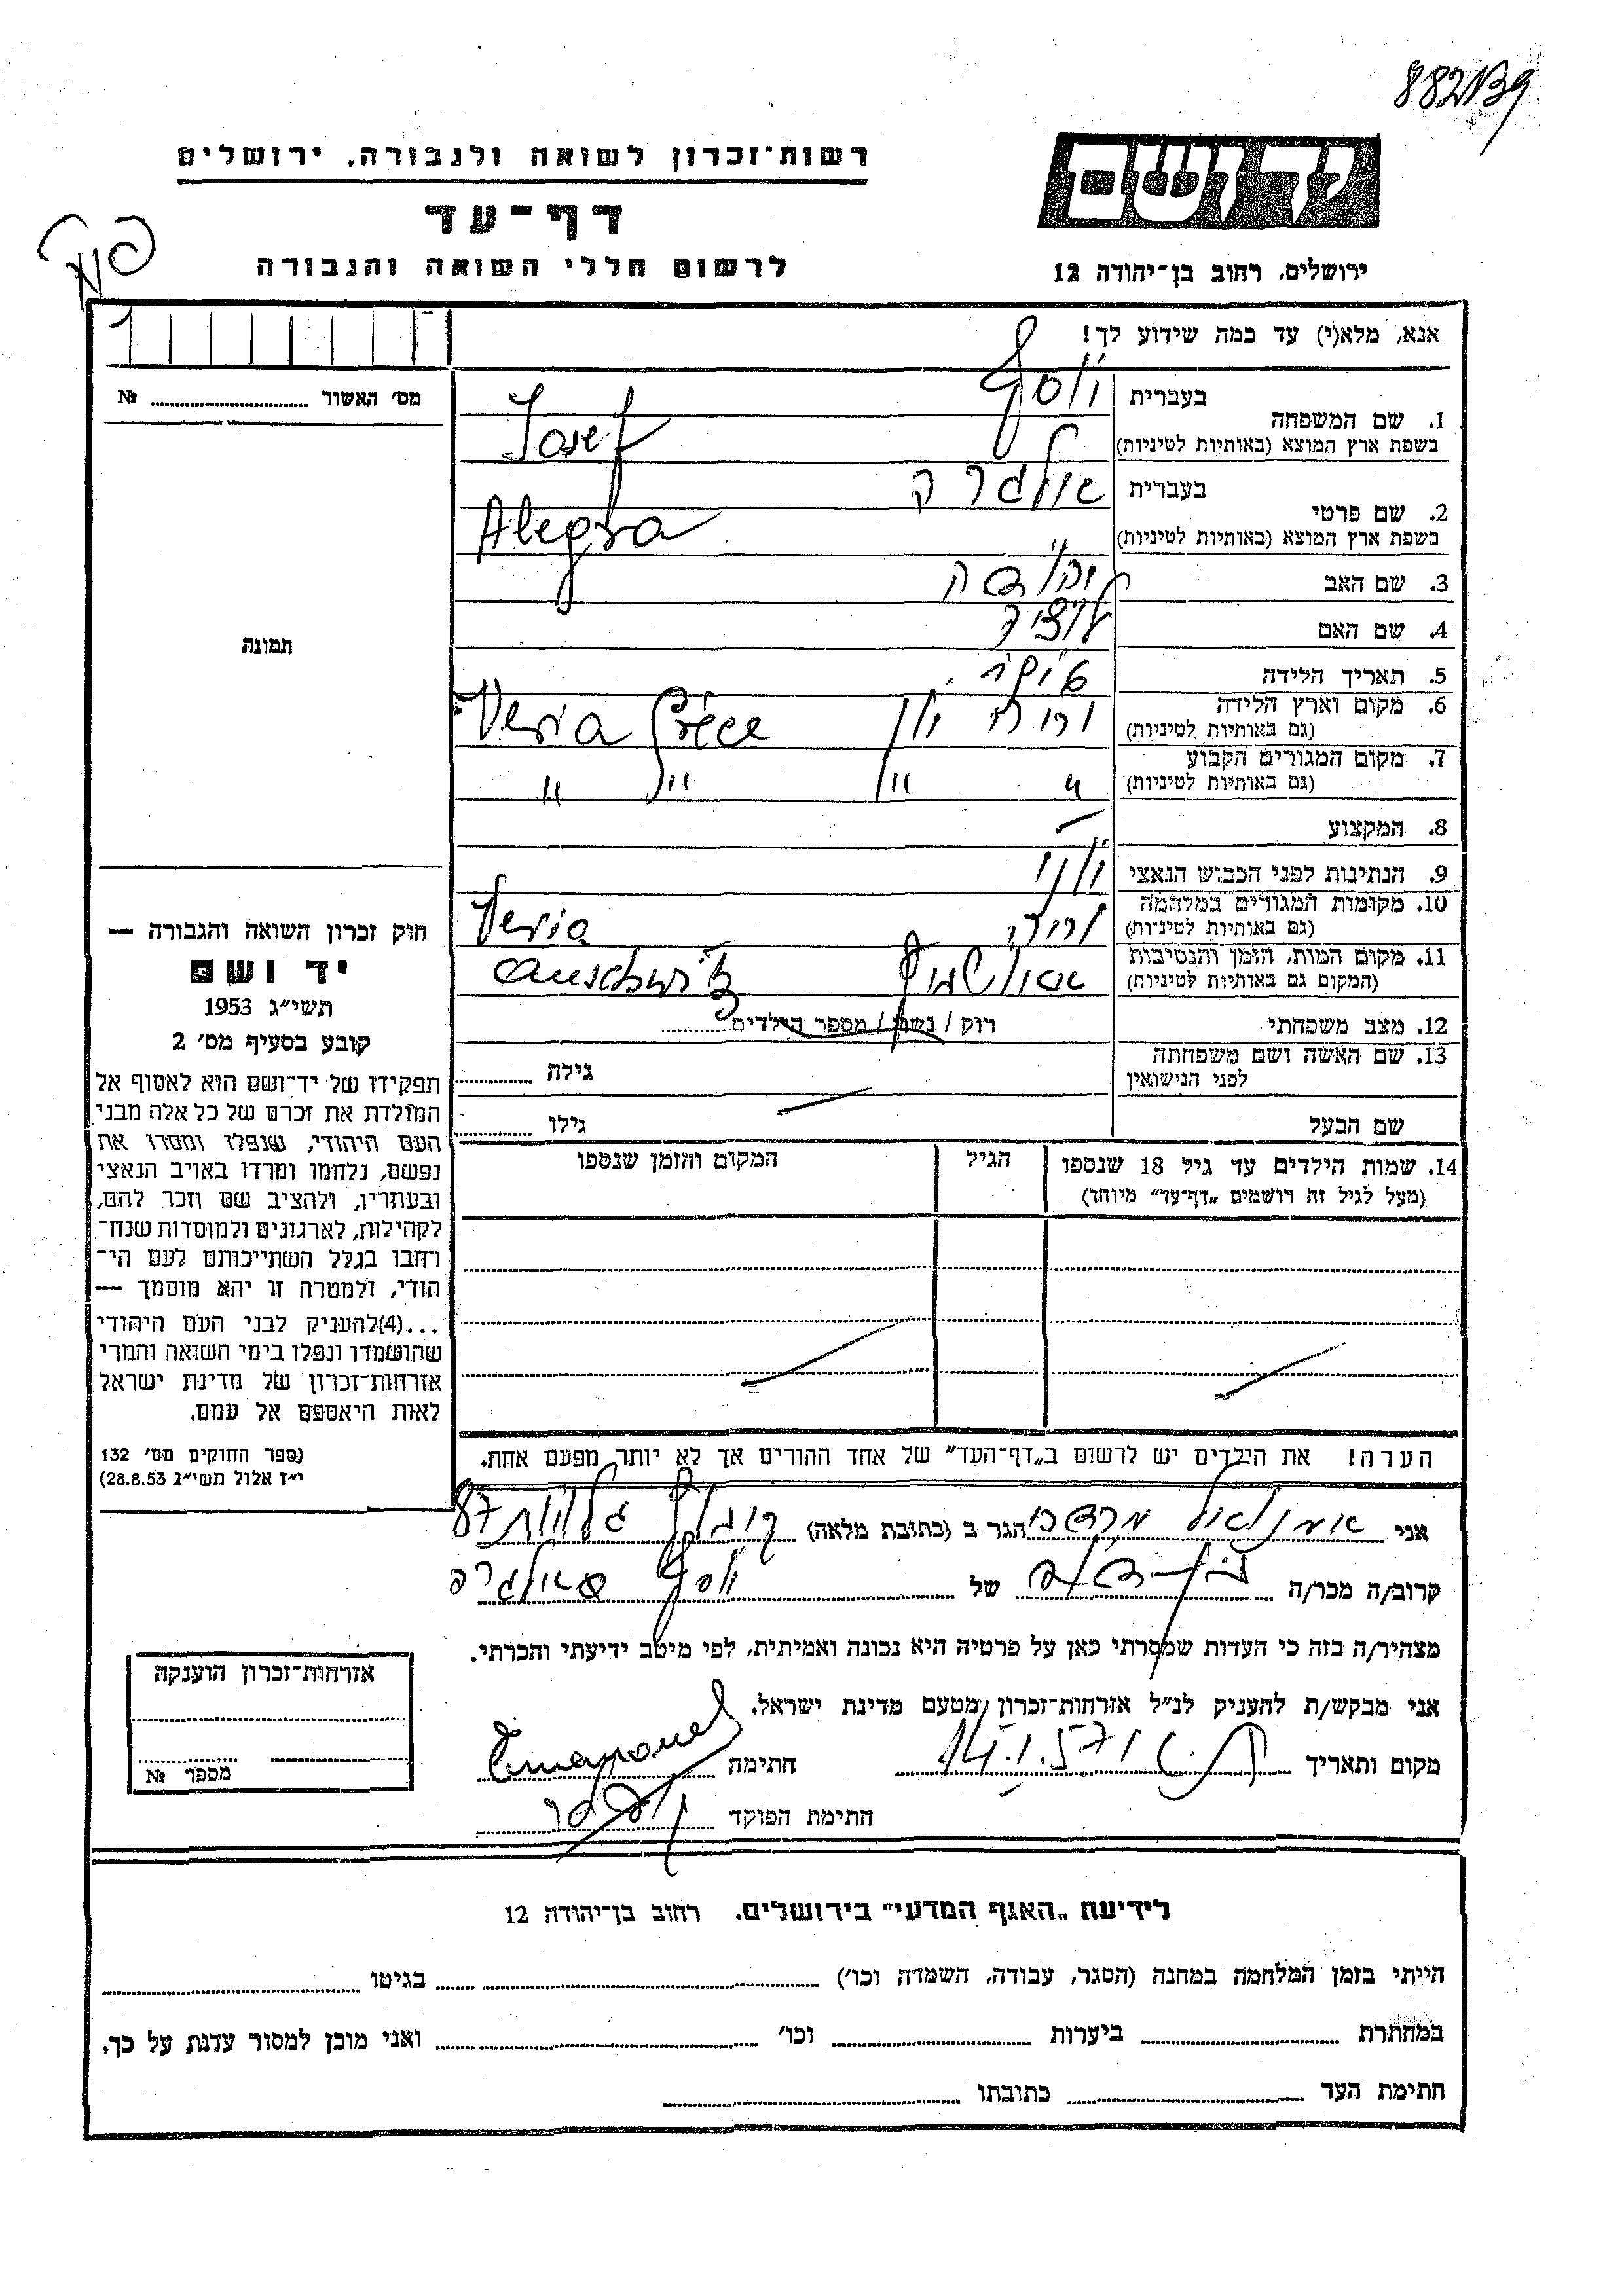 882139
רשות־זכרון לשואה ולגבורה, ירושלים
יד ושם
דף־עד
לרשום חללי השואה והגבורה
ירושלים, רחוב בן־יהודה 12
אנא, מלא(י) עד כמה שידוע לך!
מס׳ האשור № 
1. שם המשפחה
בעברית יוסף
בשפת ארץ המוצא (באותיות לטיניות) Josef
2. שם פרטי
בעברית
בשפת ארץ המוצא (באותיות לטיניות) Alegra
3. שם האב
4. שם האם
תמונה
5. תאריך הלידה
6. מקום וארץ הלידה
(גם באותיות לטיניות) וריה יון Veria Grèce
7. מקום המגורים הקבוע
(גם באותיות לטיניות) " " " "
8. המקצוע
9. הנתינות לפני הכבוש הנאצי יוני
10. מקומות המגורים במלחמה
(גם באותיות לטיניות) וריה Veria
11. מקום המות, הזמן והנסיבות
(המקום גם באותיות לטיניות) Auschwitz
12. מצב משפחתי רוק / נשוי / מספר הילדים
13. שם האשה ושם משפחתה
לפני הנישואין גילה
שם הבעל גילו
14. שמות הילדים עד גיל 18 שנספו
(מעל לגיל זה רושמים „דף־עד" מיוחד)
הגיל
המקום והזמן שנספו
הערה! את הילדים יש לרשום ב„דף־העד" של אחד ההורים אך לא יותר מפעם אחת.
חוק זכרון השואה והגבורה —
יד ושם
תשי״ג 1953
קובע בסעיף מס׳ 2
תפקידו של יד־ושם הוא לאסוף אל
המולדת את זכרם של כל אלה מבני
העם היהודי, שנפלו ומסרו את
נפשם, נלחמו ומרדו באויב הנאצי
ובעוזריו, ולהציב שם וזכר להם,
לקהילות, לארגונים ולמוסדות שנח־
רבו בגלל השתייכותם לעם הי־
הודי, ולמטרה זו יהא מוסמך —
...(4)להעניק לבני העם היהודי
שהושמדו ונפלו בימי השואה והמרי
אזרחות־זכרון של מדינת ישראל
לאות היאספם אל עמם.
(ספר החוקים מס׳ 132
י״ז אלול תשי״ג 28.8.53)
אני עמנואל מרדכי הגר ב (כתובת מלאה) קבוץ גלויות 87
קרוב/ה מכר/ה של יוסף
מצהיר/ה בזה כי העדות שמסרתי כאן על פרטיה היא נכונה ואמיתית, לפי מיטב ידיעתי והכרתי.
אני מבקש/ת להעניק לנ״ל אזרחות־זכרון מטעם מדינת ישראל.
מקום ותאריך 14.1.57 חתימה Emanouel
חתימת הפוקד
אזרחות־זכרון הוענקה
מספר №
לידיעת „האגף המדעי" בירושלים. רחוב בן־יהודה 12
הייתי בזמן המלחמה במחנה (הסגר, עבודה, השמדה וכו׳) בגיטו
במחתרת ביערות וכו׳ ואני מוכן למסור עדות על כך.
חתימת העד כתובתו